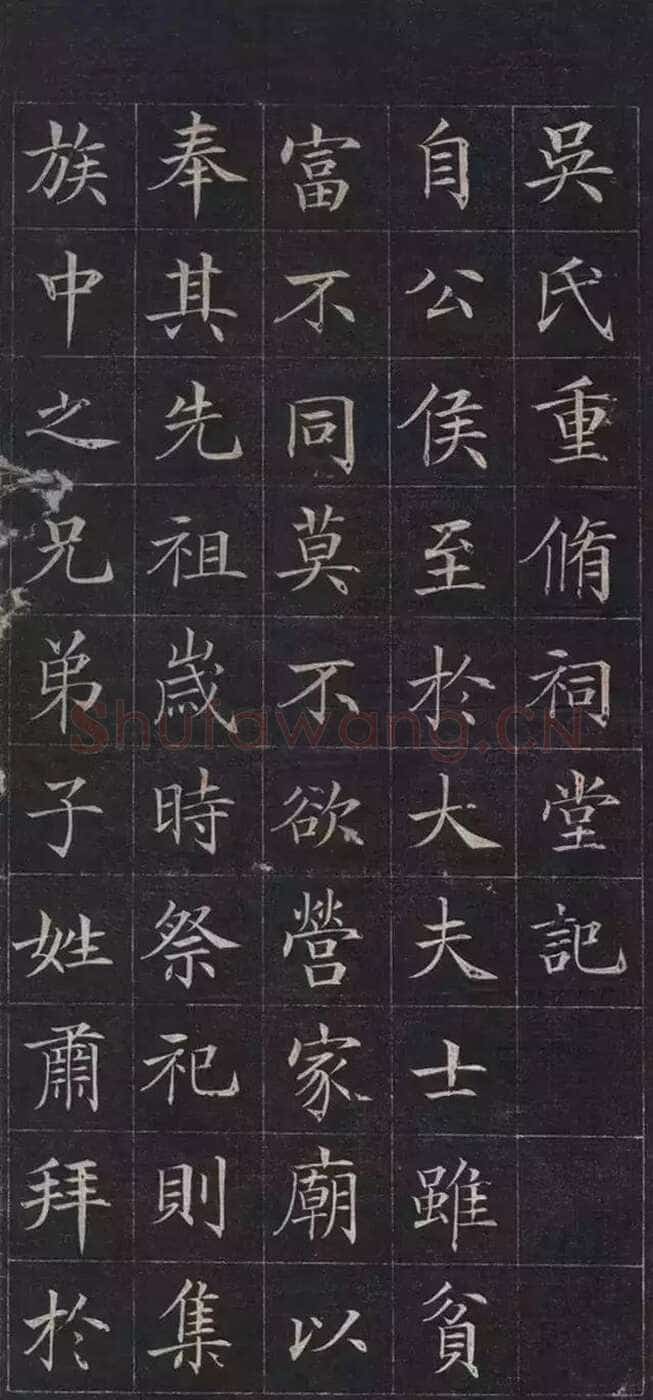 吳氏重脩祠堂記
自公侯至於大夫士雖貧
富不同莫不欲營家廟以
奉其先祖歲時祭祀則集
族中之兄弟子姓肅拜於
Shufawang.CN